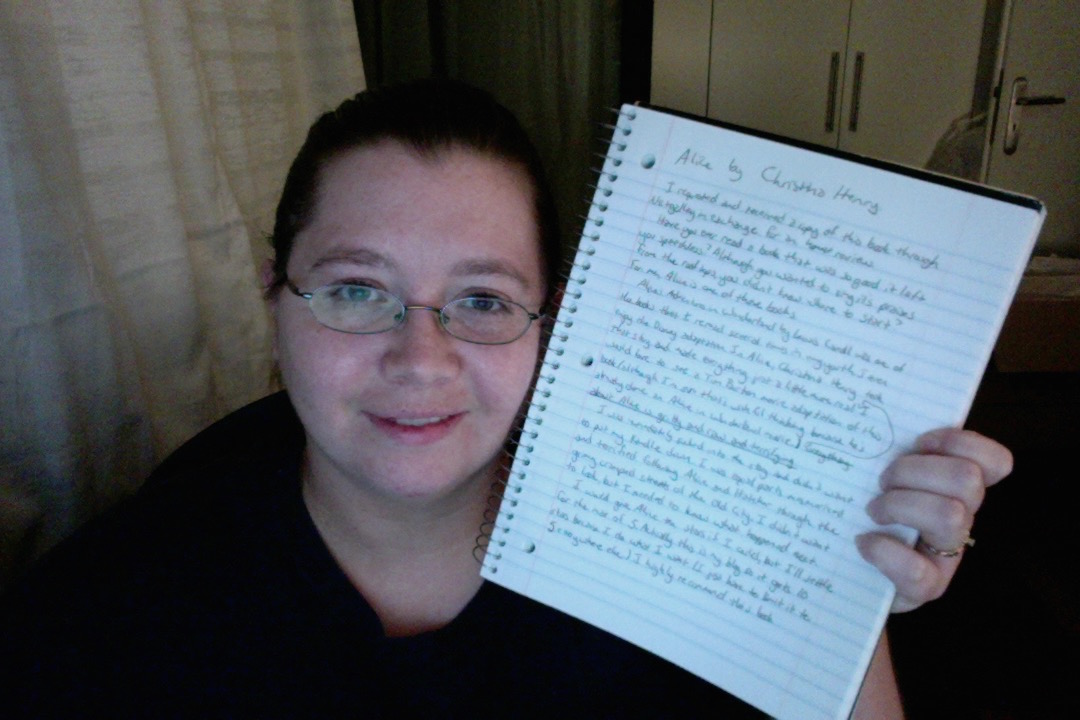 Alice by Christina Henry
I requested and received a copy of this book through
Netgalley in exchange for an honest review.
Have you ever read a book that was so good it left
you speechless? Although you wanted to sing its praises
from the rooftops you didn't know where to start?
For me, Alice is one of those books.
Alice's Adventures in Wonderland by Lewis Carroll was one of
the books that I reread several times in my youth. I even
enjoy the Disney adaptation. In Alice, Christina Henry took
that story and made everything just a little more real. I
would love to see a Tim Burton movie adaptation of this
book (although I'm on that's with thinking because he's
already done an Alice in Wonderland movie.) Everything
about Alice is gritty and raw and terrifying
I was immediately sucked into the story and didn't want
to put my Kindle down. I was equal parts enamored
and terrified following Alice and Hatcher through the
grimy cramped streets of the Old City. I didn't want
to look, but I needed to know what happened next.
I would give Alice stars if I could, but I'll settle
for the max of 5. Actually this is my blog so it gets 10
stars because I do what I want. (I just have to limit it to
5 everywhere else.) I highly recommend this book